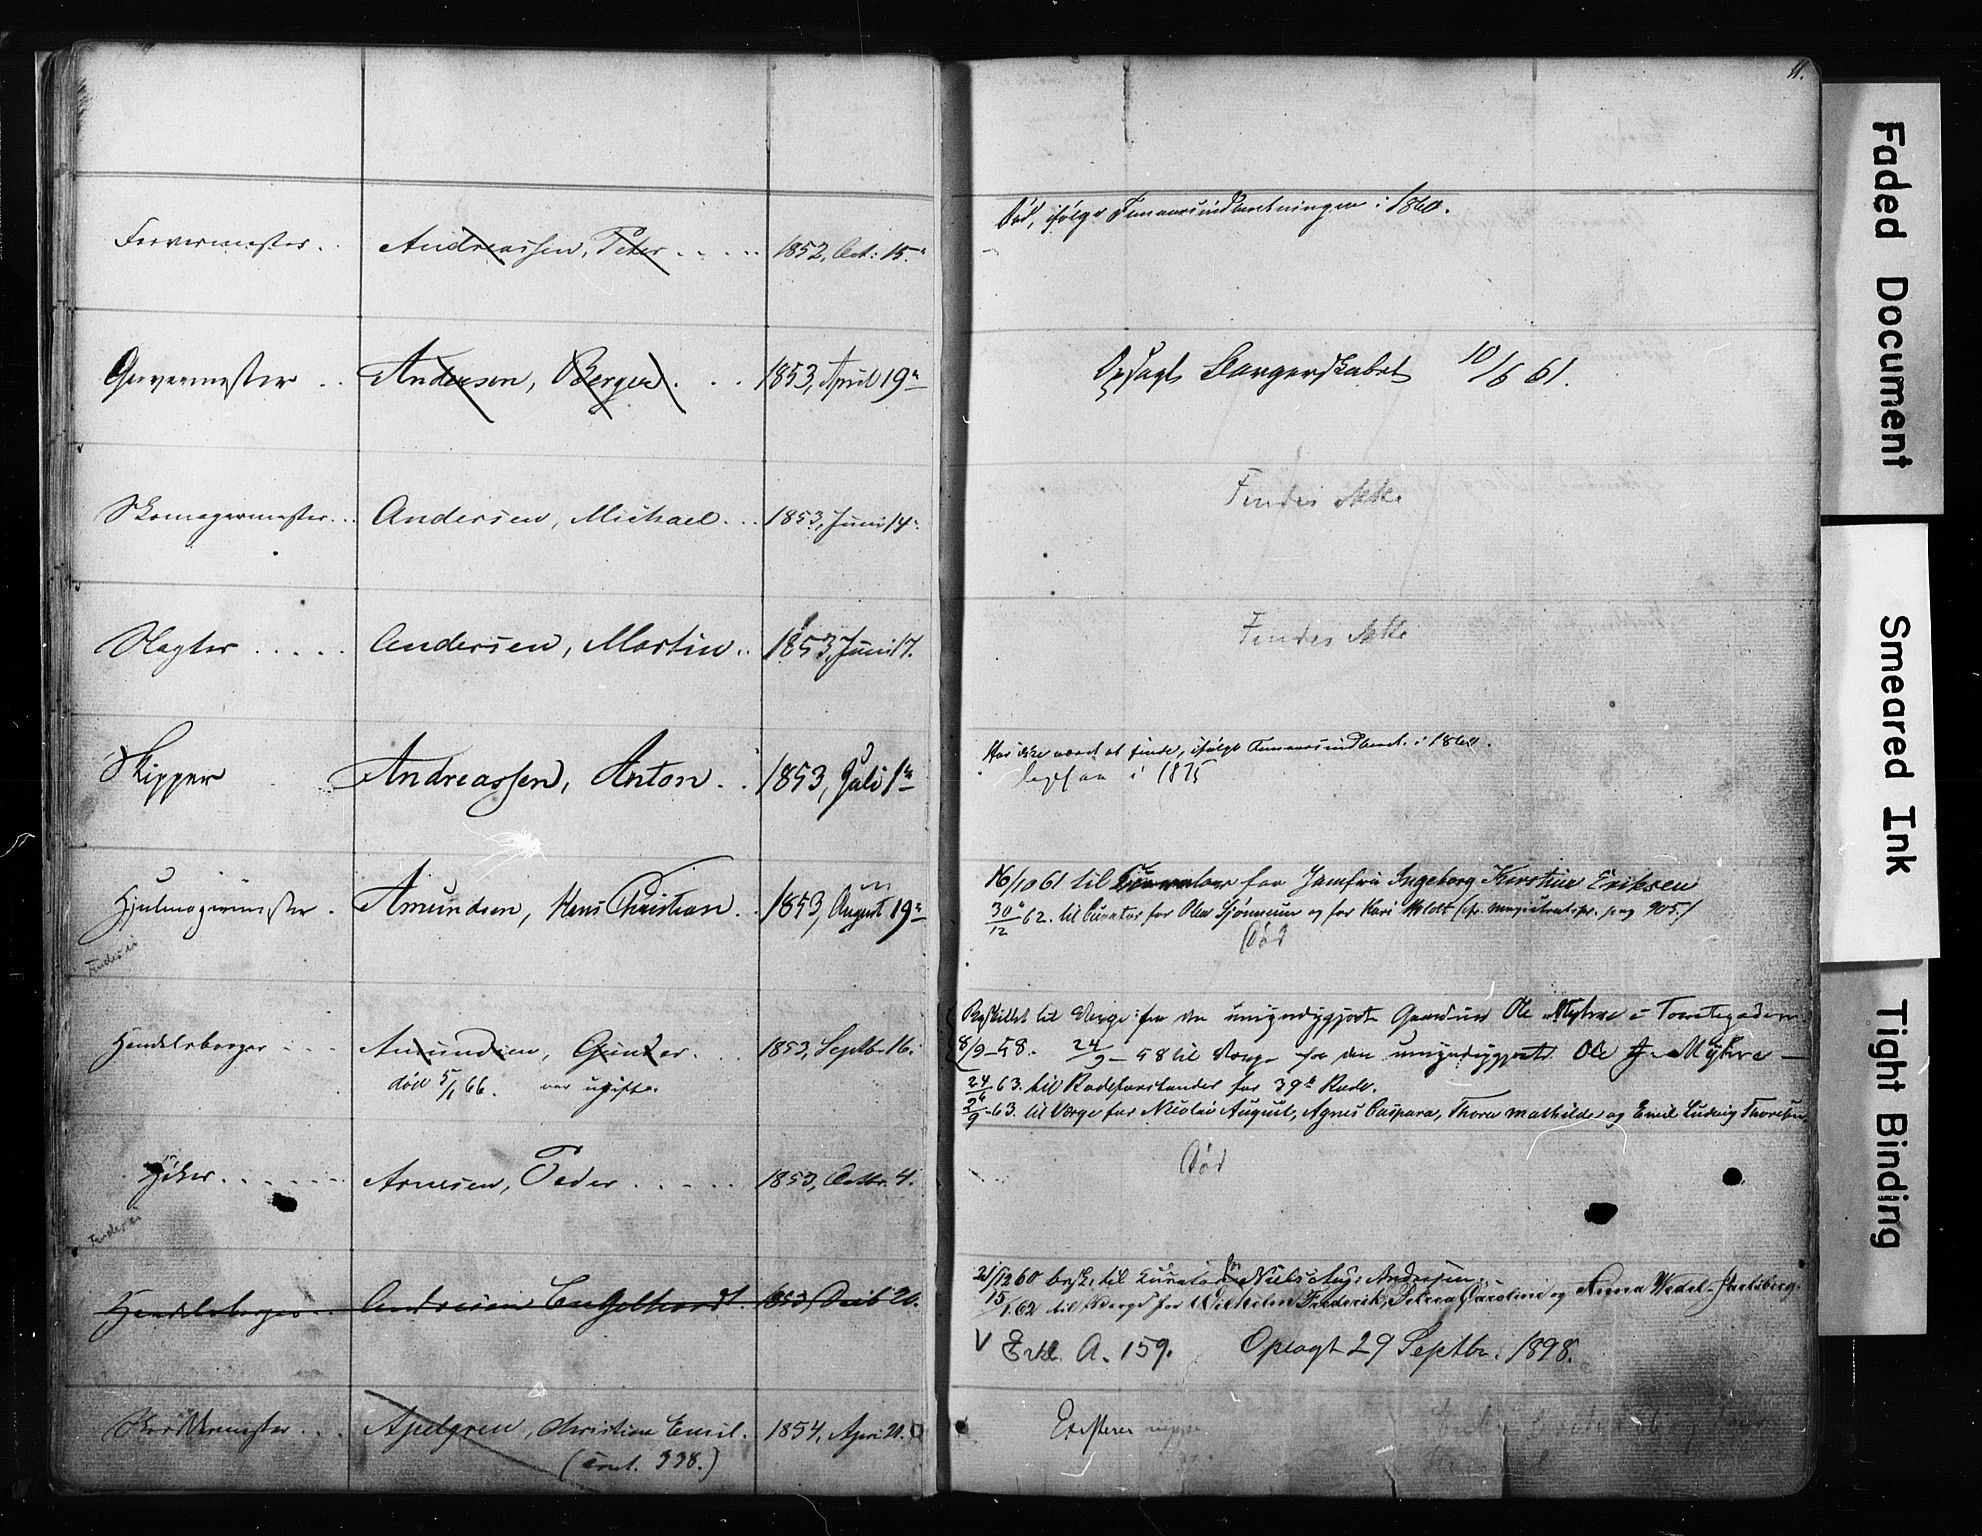 11.
Farvermester . . Andreassen, Peter . . . . . 1852, Oct: 15.
Død, ifølge Temaarsindberetningen i 1860.
Garvermester . . Andersen, Berger . . . 1853, April 19de
Opsagt Borgerskabet 10/6 61.
Skomagermester . . . Andersen, Michael . . . 1853, Juni 14.
Findes ikke
Slagter . . . . . Andersen, Martin . . 1853, Juni 17.
Findes ikke
Skipper . Andreassen, Anton . . 1853, Juli 1ste
Har ikke været at finde, ifølge Temaarsindberet. i 1860.
ligesaa i 1875
Hjulmagermester . Amundsen, Hans Christian . . 1853, August 19de
16/10 61 til Curator for Jomfru Ingeborg Kirstine Eriksen
30/12 62. til Curator for Olea Sjønneun og for Kari Holdt (cfr. magistratspr. pag 905.)
Død
Findes ei
Handelsborger . . . Amundsen, Gunder . . 1853, Septb. 16.
død 5/1 66. var ugift.
Beskikket til Værge for den umyndiggjorte Gaardmd Ole Myhre i Tomtegaden
8/9-58. 24/9-58 til Værge for den umyndiggjorte Ole J. Myhre —
24/6 63. til Rodeforstander for 39te Rode.
26/9-63. til Værge for Nicolai August, Agnes Caspara, Thora Mathilde og Emil Ludvig Thoresen.
Høker . . . . . . Arnesen, Peder . . . . . 1853, Octbr. 4.
Død
Findes ei
Handelsborger . . Andresen Engelhardt . 1853, Decb 20.
21/12 60 besk. til Curator for Niels Aug: Andresen.
15/1 62 til Værge for Wilhelm Frederik, Petrea Caroline og Anna Wedel-Jarlsberg.
V Erkl. A. 159. Opsagt 29 Septbr. 1898.
Skræddermester . . . Apelgren, Christian Emil . 1854, April 21.
(Anm. 338.)
Existerer
Faded Document
Smeared Ink
Tight Binding